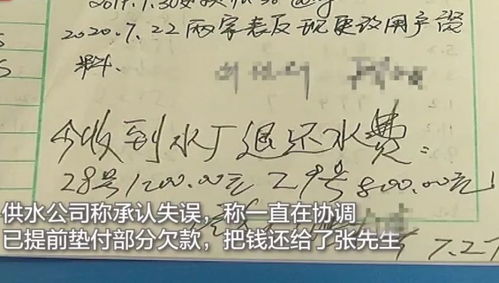 2020.7.22两家表反现更改用户资
料.
今收到水厂退还水费:
28号1200.00元 29号800.00元
供水公司称承认失误，称一直在协调
已提前垫付部分欠款，把钱还给了张先生
7.27